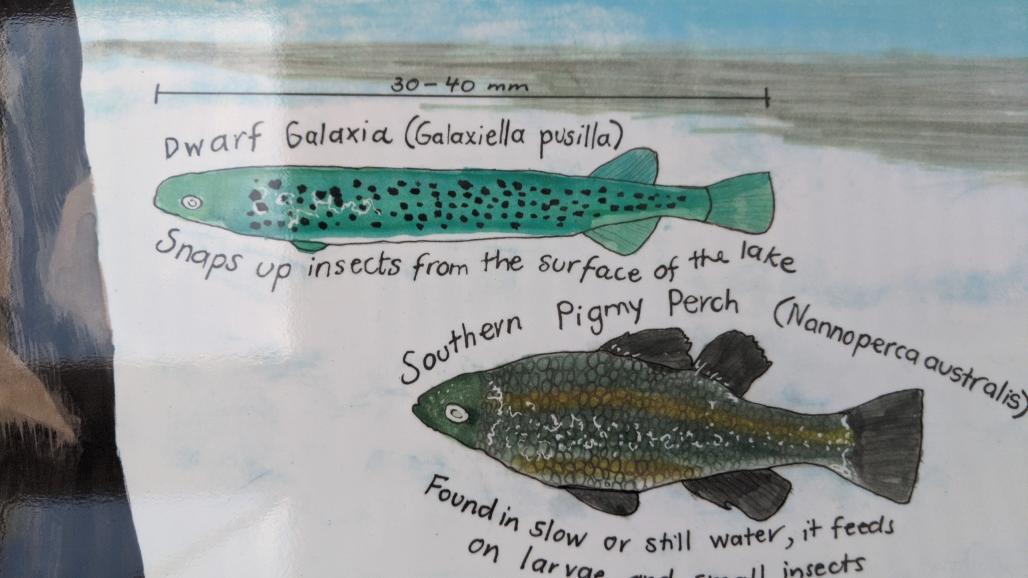 30-40 mm
Dwarf Galaxia (Galaxiella pusilla)
Snaps up insects from the surface of the lake
Southern Pigmy Perch (Nannoperca australis)
Found in slow or still water, it feeds
on larvae and small insects